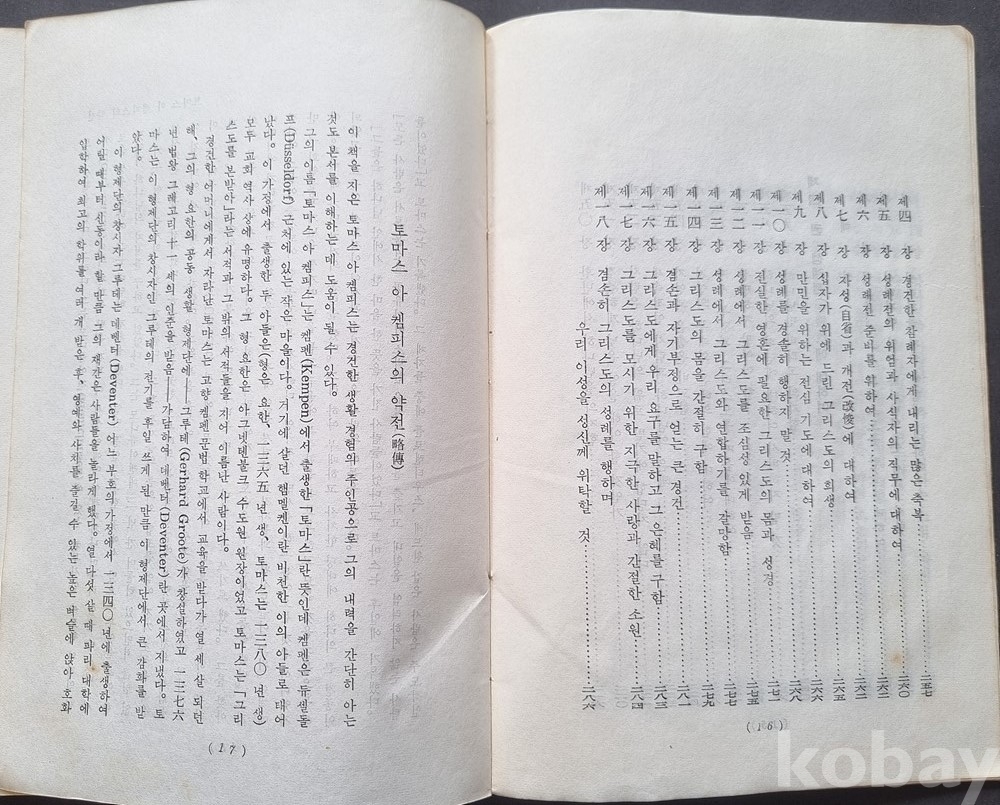 제 四 장 경건한 참례자에게 내리는 많은 축복……二五七
제 五 장 성례전의 위엄과 사식자의 직무에 대하여……二六〇
제 六 장 성례전 준비를 위하여……二六二
제 七 장 자성(自省)과 개전(改悛)에 대하여……二六三
제 八 장 십자가 위에 드린 그리스도의 희생……二六五
제 九 장 만민을 위하는 전심 기도에 대하여……二六六
제一〇장 성례를 경솔히 행하지 말 것……二六八
제一一장 진실한 영혼에 필요한 그리스도의 몸과 성경
제一二장 성례에서 그리스도를 조심성 있게 받음……二七五
제一三장 성례에서 그리스도와 연합하기를 갈망함……二七七
제一四장 그리스도의 몸을 간절히 구함……二七九
제一五장 겸손과 자기부정으로 얻는 큰 경건……二八一
제一六장 그리스도에게 우리 요구를 말하고 그 은혜를 구함……二八三
제一七장 그리스도를 모시기 위한 지극한 사랑과 간절한 소원……二八四
제一八장 겸손히 그리스도의 성례를 행하며
우리 이성을 성신께 위탁한 것……二八六
(16)
토마스 아 켐피스의 약전(略傳)
이 책을 지은 토마스 아 켐피스는 경건한 생활 경험의 주인공으로 그의 내력을 간단히 아는
것도 본서를 이해하는 데 도움이 될 수 있다.
그의 이름 「토마스 아 켐피스」는 켐펜(Kempen)에서 출생한 「토마스」란 뜻인데 켐펜은 듀셀돌
프(Düsseldorf) 근처에 있는 작은 마을이다. 거기에 살던 햄멜켄이란 비천한 이의 아들로 태어
났다. 이 가정에서 출생한 두 아들은(형은 요한, 一三六五년 생, 토마스는 一三八〇년 생)
모두 교회 역사 상에 유명하다. 그 형 요한은 아그넷텐불크 수도원 원장이었고 토마스는 「그리
스도를 본받아」라는 서적과 그 밖의 서적들을 지어 이름난 사람이다.
경건한 어머니에게서 자라난 토마스는 고향 켐펜 문법 학교에서 교육을 받다가 열 세 살 되던
해, 그의 형 요한의 공동 생활 형제단에——그루테(Gerhard Groote)가 창설하였고 一三七六
년 법왕 그레고리 十一세의 인준을 받음——가담하여 데벤터(Deventer)란 곳에서 지냈다. 토
마스는 이 형제단의 창시자인 그루테의 전기를 후일 쓰게 된 만큼 이 형제단에서 큰 감화를 받
았다.
이 형제단의 창시자 그루테는 데벤터(Deventer) 어느 부호의 가정에서 一三四〇년에 출생하여
어릴 때부터 신동이라 할 만큼 그의 재간은 사람들을 놀라게 했다. 열 다섯 살 때 파리 대학에
입학하여 최고의 학위를 여러 개 받은 후, 영예와 사치를 즐길 수 있는 높은 벼슬에 앉아 호화
(17)
kobay